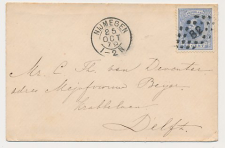 NIJMEGEN
25
OCT
1-2
Mr. C. Th. van Deventer
adres Mejufvrouw Beyer
Delft